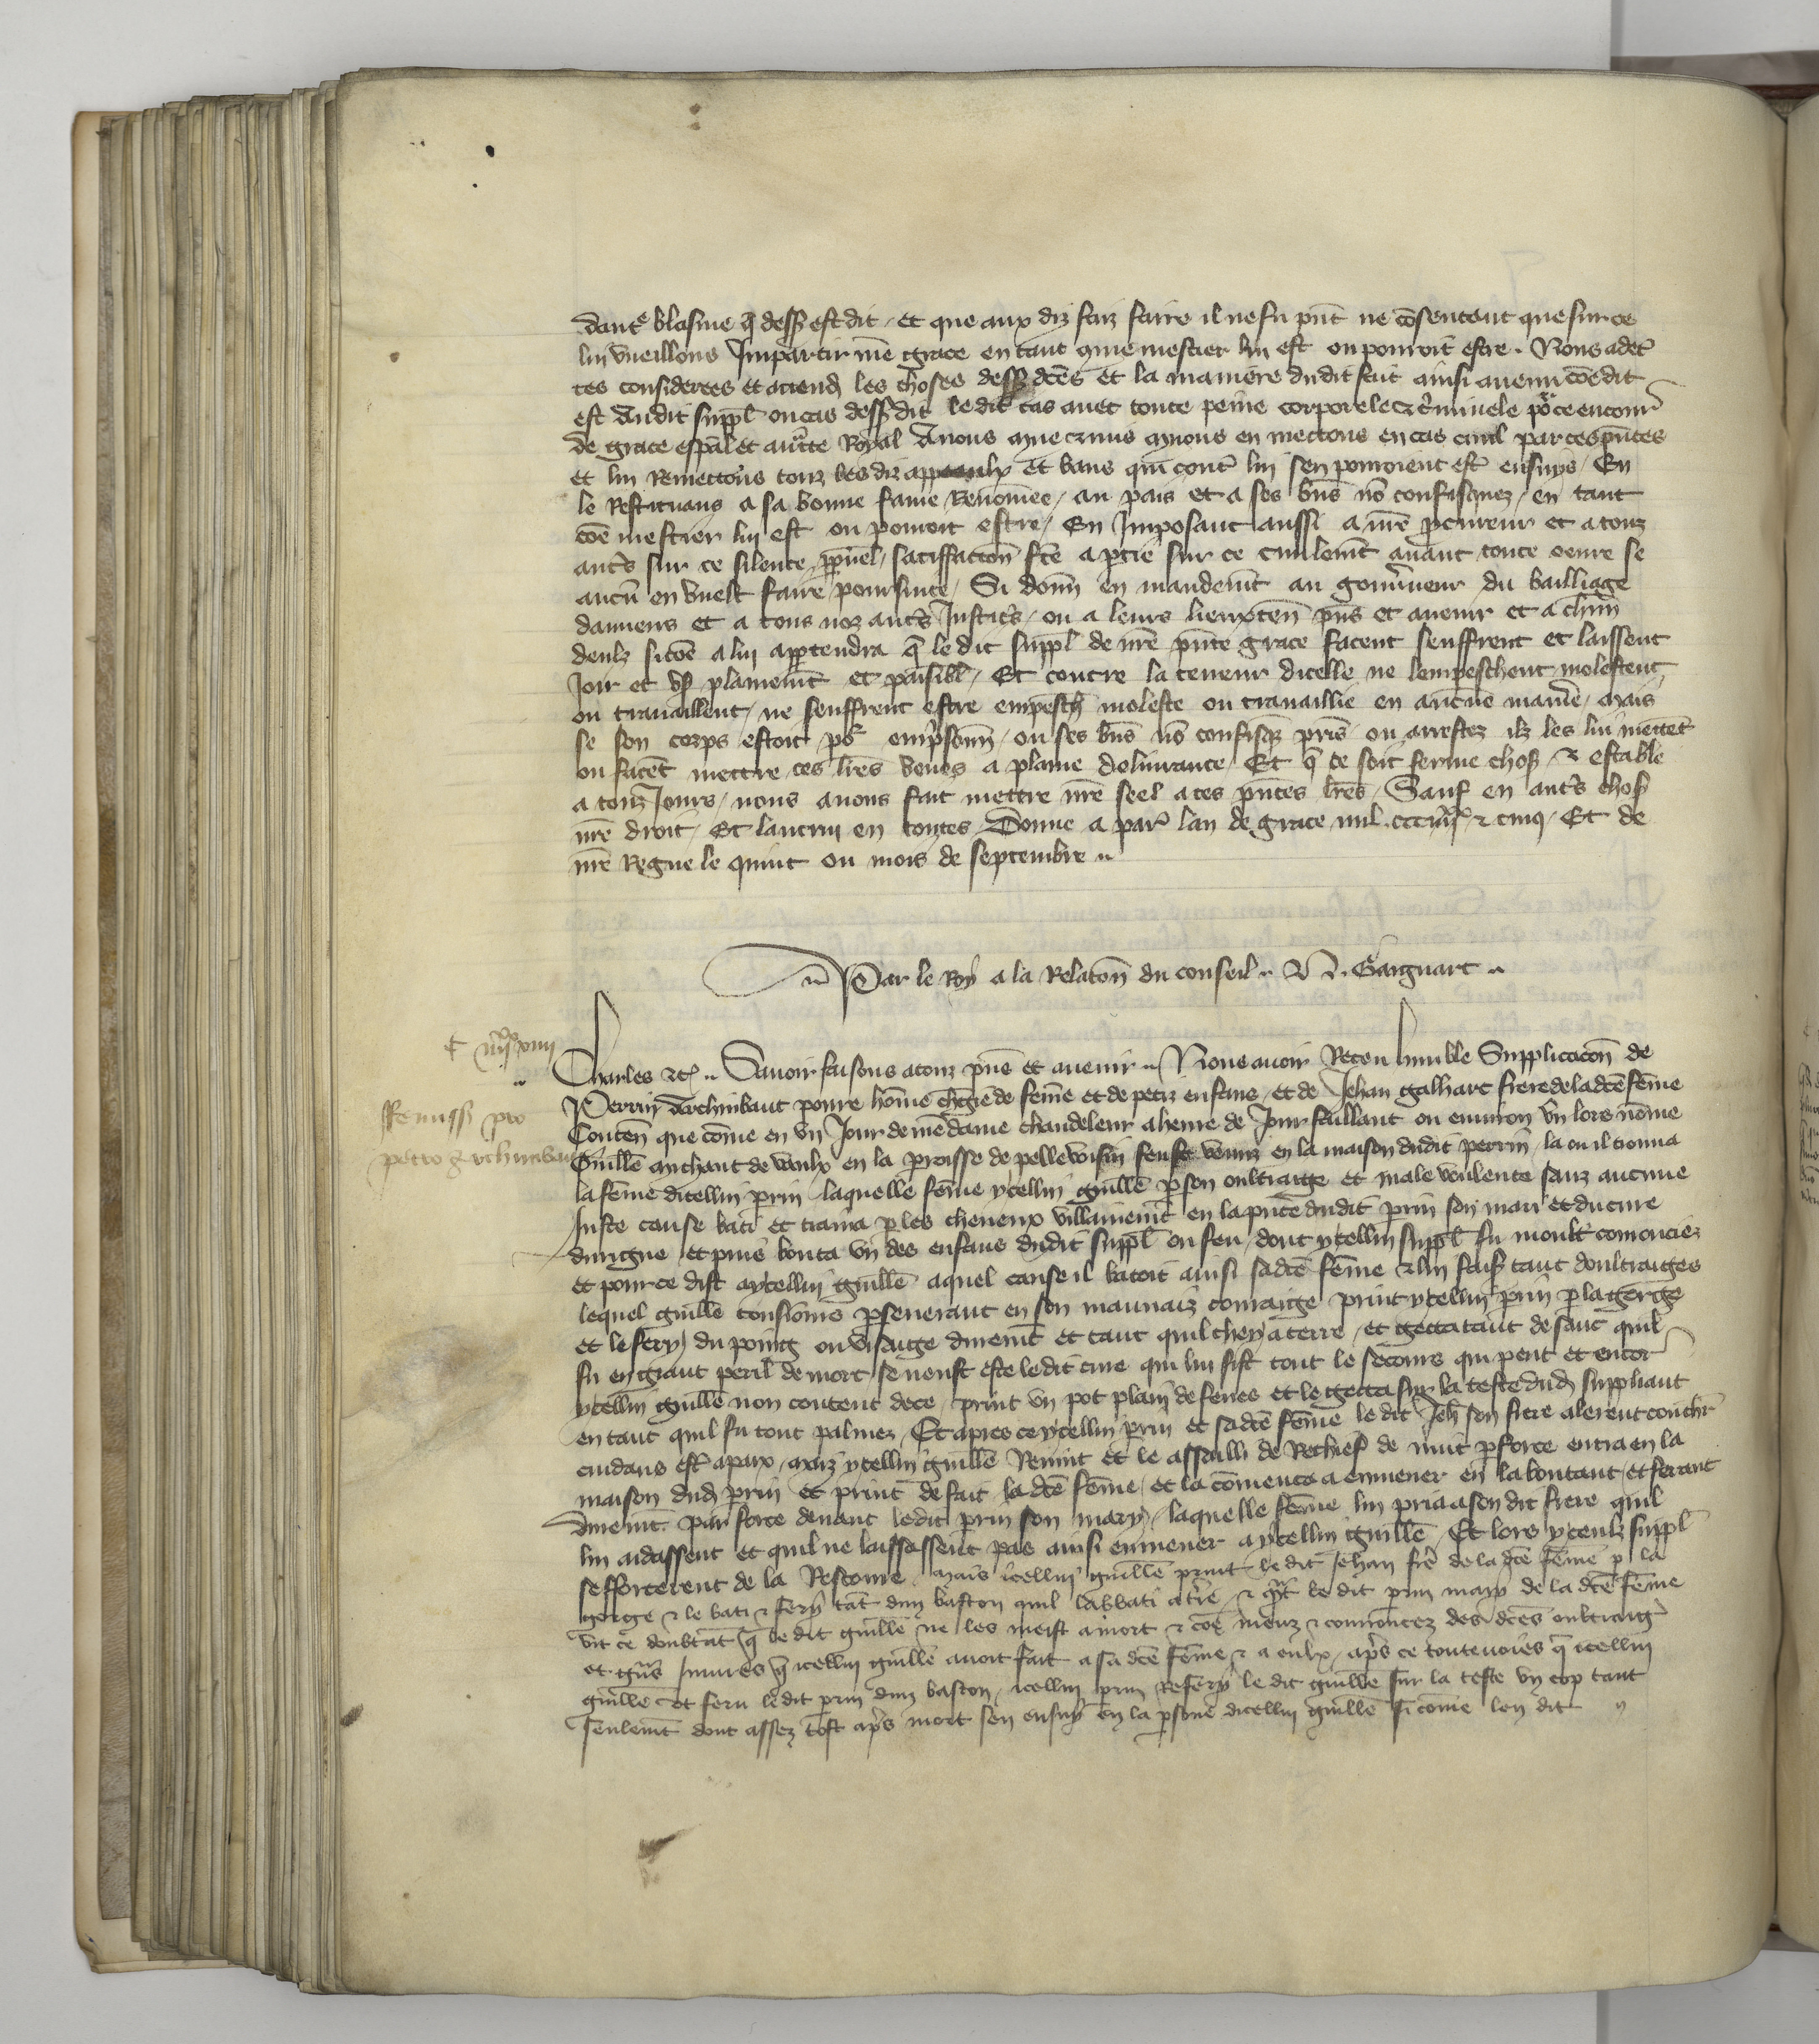 dautre blasme que dessus est dit, et que aux diz faiz faire il ne fu present ne consentent que sur ce
lui vueillons Impartir nostre grace en tant que mestier lui est ou pourroit estre. Nous adecer
tes considerees et attendu les choses dessus dictes et la maniere dudit fait ainsi avenu comme dit
est Audit suppl ou cas dessus dit le dit cas avec toute peine corporele et criminele pour ce encour
de grace especial et auctorite Royal Avons mue et mis muons et mectons en cas civil par ces presentes
et lui Remectons touz les diz appeaulx et bans qui contre lui sen pourroient estre ensuys, En
le Restituans a sa bonne fame Renommee, au pais et a ses biens non confisquez, en tant
comme mestier lui est ou pourroit estre, En Imposant aussi a nostre procureur et a touz
autres sur ce silence perpetuel, satiffaction faicte a partie sur ce civilement avant toute oeuvre se
aucun en vuelt faire poursuite, Si donnons en mandement au gouverneur du bailliage
damiens et a tous noz autres Justiciers, ou a leurs lieuxtenans presens et avenir et a chascun
deulz si comme a lui appartendra que le dit suppl de nostre presente grace facent seuffrent et laissent
Joir et user plainement et paisiblement, Et contre la teneur dicelle ne lempeschent molestent
ou travaillent, ne seuffrent estre empeschie moleste ou travaillie en aucune maniere, mais
se son corps estoit pour ce emprisonne, ou ses biens non confisquez pris ou arrestez ilz les lui mettent
ou facent mettre ces lettres veues a plaine delivrance, Et que ce soit ferme chose et estable
a touz Jours, nous avons fait mettre nostre seel a ces presentes lettres, Sauf en autres choses
nostre droit, Et lautrui en toutes, Donne a Paris lan de grace mil ccc iiiixx et cinq, Et de
nostre Regne le quint ou mois de septembre
Par le Roy a la Relacion du conseil. N. Gaignart
iiiixx xviii
Charles etc. Savoir faisons a touz presens et avenir. Nous avoir Receu humble Supplicacion de
Remissio pro
petro Archimbau
Perrin Archimbaut povre homme chargie de femme et de petiz enfans, et de Jehan galhart frere de la dicte femme
Contenant que comme en un Jour de nostre dame chandeleur a heure de Jour faillant ou environ un lors nomme
Guillaume michaut de vaulx en la parroisse de pellevoisin feust venuz en la maison dudit perrin, la ou il trouva
la femme dicellui perrin laquelle femme ycellui guillaume par son oultraige et male voulente sanz aucune
Juste cause bati et traina par les cheveux villainement en la presence dudit perrin son mari et du cure
et puis bouta un des enfans dudit suppl ou feu, dont ycellui suppl fu moult courouciez
et pour ce dist a ycellui guillaume a quel cause il batoit ainsi sa dicte femme et lui faisoit tant doultraiges
lequel guillaume perseverant en son mauvaiz couraige print ycellui perrin par la gorge
et le fery du poing ou visaige durement et tant quil chey a terre, et gecta tant de sanc quil
fu en grant peril de mort se neust este ledit cure qui lui fist tout le secours qui peut et encor
ycellui guillaume non content de ce, print un pot plain de feves et le gecta sur la teste dudit suppliant
en tant quil fu tout palmez, Et apres ce ycellui perrin et sa dicte femme le dit Jehan son frere alerent couchier
cuidans estre a paix, maiz ycellui guillaume Revint et le assailli de Rechief de nuit par force entra en la
maison dudit perrin et print de fait la dicte femme, et la commenca a enmener en la boutant et ferant
durement par force devant ledit perrin son mary, laquelle femme lui pria a son dit frere quil
lui aidassent et quil ne laissassent pas ainsi enmener a ycellui guillaume, Et lors yceulz suppl
sefforcerent de la Rescourre, mais icellui guillaume print le dit Jehan frere de la dicte femme par la
gorge et le bati et fery tant dun baston quil labbati a terre, et quant le dit perrin mary de la dicte femme
vit ce doubtant que le dit guillaume ne les meist a mort et comme meuz et courrouncez des dictes oultraiges
et griefs Injures que icellui guillaume avoit fait a sa dicte femme et a eulx, apres ce toutesvoies que icellui
guillaume ot feru le dit perrin dun baston, icellui perrin Refery le dit guillaume sur la teste un cop tant
seulement dont assez tost apres mort sen ensuy en la personne dicellui guillaume si comme len dit